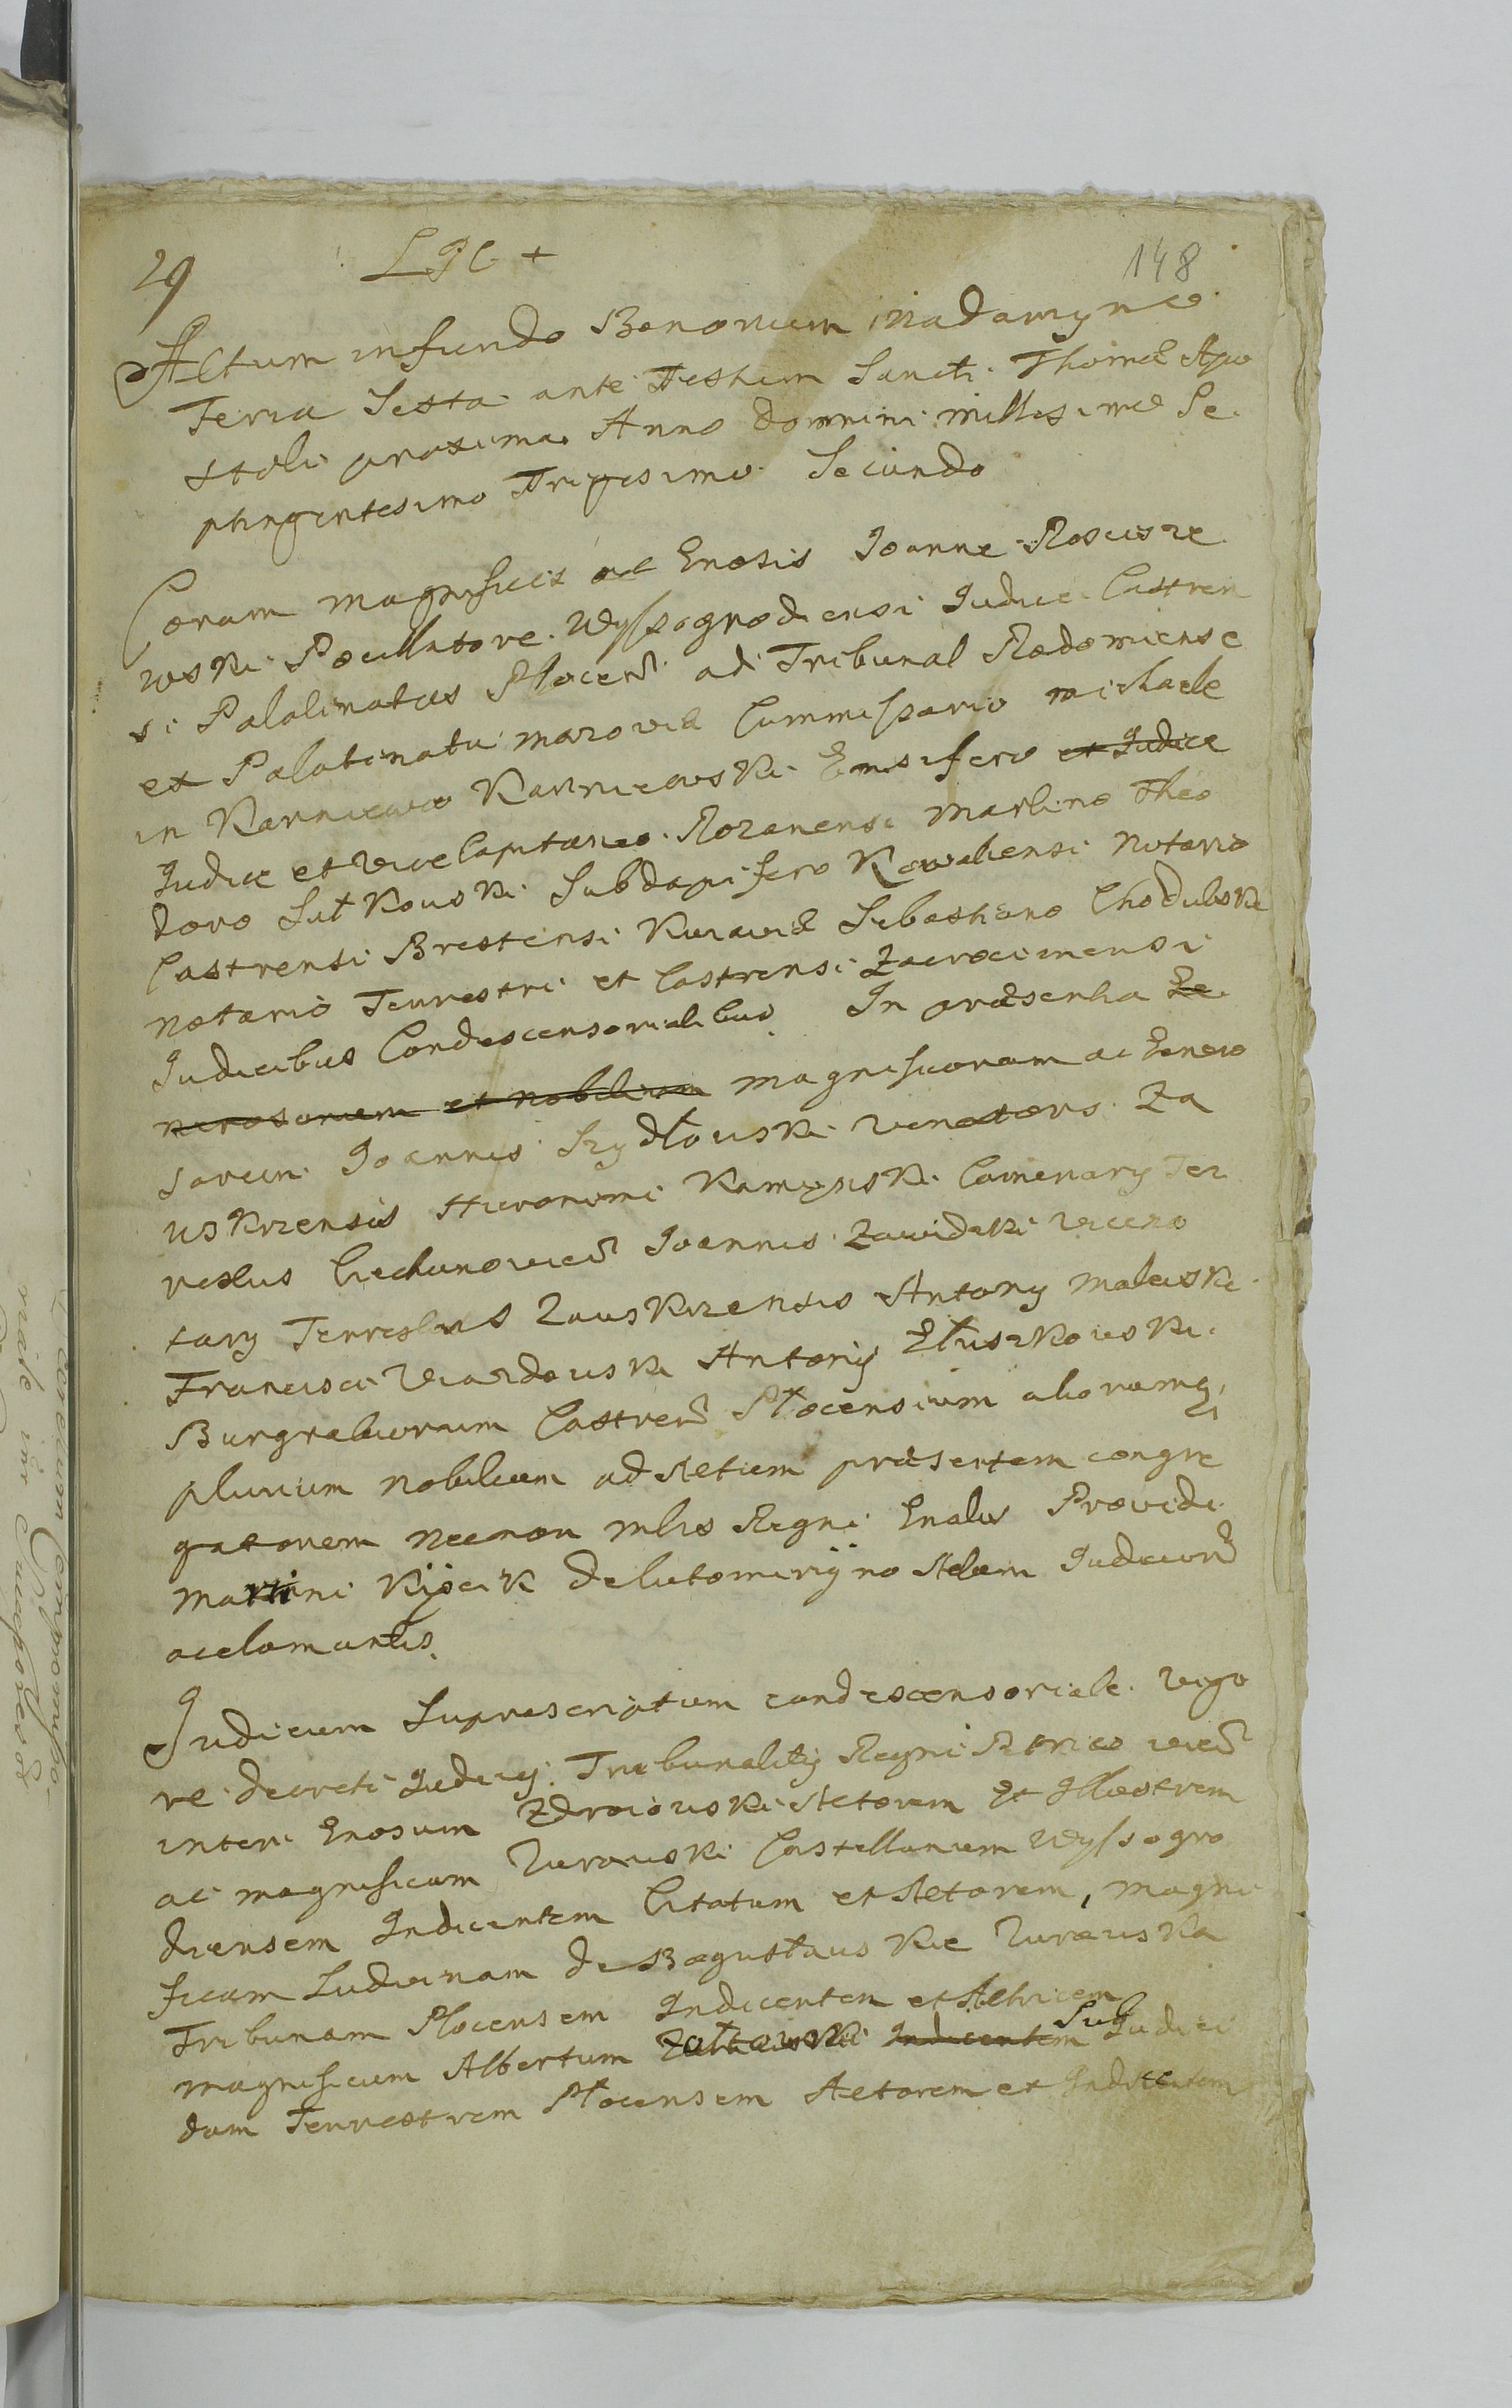 29 148
Actum in fundo Bonorum Nadamyno
Feria Sexta ante Festum Sancti Thomæ Apo
stoli proxima Anno Domini millesimo Se
ptingentesimo Trigesimo Secundo
Coram magnificis ac Gnosis Joanne Roscisze
wski Pocillatore Wyssogrodiensi Judice Castren
si Palatinatus Plocen ad Tribunal Radomiense
et Palatinatu mazoviæ Commissario michaele
in Karniewo Karniewski Ensifero et Judice
Judice et Vice Capitaneo Rozanensi Martino Theo
doro Sutkowski Subdapifero Kowaliensi Notario
Castrensi Brestensi Kuiaviæ Sebastiano Chodubski
notario Terrestri et Castrensi Zacrocimensi
Judicibus Condescensorialibus In præsentia Ge
nerosorum et nobilium magnificorum ac Genero
sorum Joannis Szydłowski Venatoris Za
wskrzensis Hieronimi Kampski Camerarij Ter
restris Ciechanovien Joannis Zawidzki Viceno
tarij Terrestris Zawskrzensis Antonij Malewski
Francisci Wiazdowski Antonij Głuszkowski
Burgrabiorum Castren Płocensium aliorumq
plurium nobilium ad Actum præsentem congre
gatorem necnon mlis Regni Gnalis Providi
Martini Kijscik de Lutomirzyno Actum Judiciorū
acclamantis
Judicium Suprascriptum condescensoriale vigo
re decreti Judicij Tribunalitij Regni Petricovien
inter Gnosum Zdroiowski Actorem et Illustrem
ac magnificum Zurawski Castellanum Wyssogro
diensem Indicentem Citatum et Actorem, magni
ficam Ludvinam de Bogusławskie Zurawska
Tribunam Plocensem Indicentem et Actricem
magnificum Albertum Zołtowski Indicentem Sub Judici
dum Terrestrem Płocensem Actorem et Indicentem